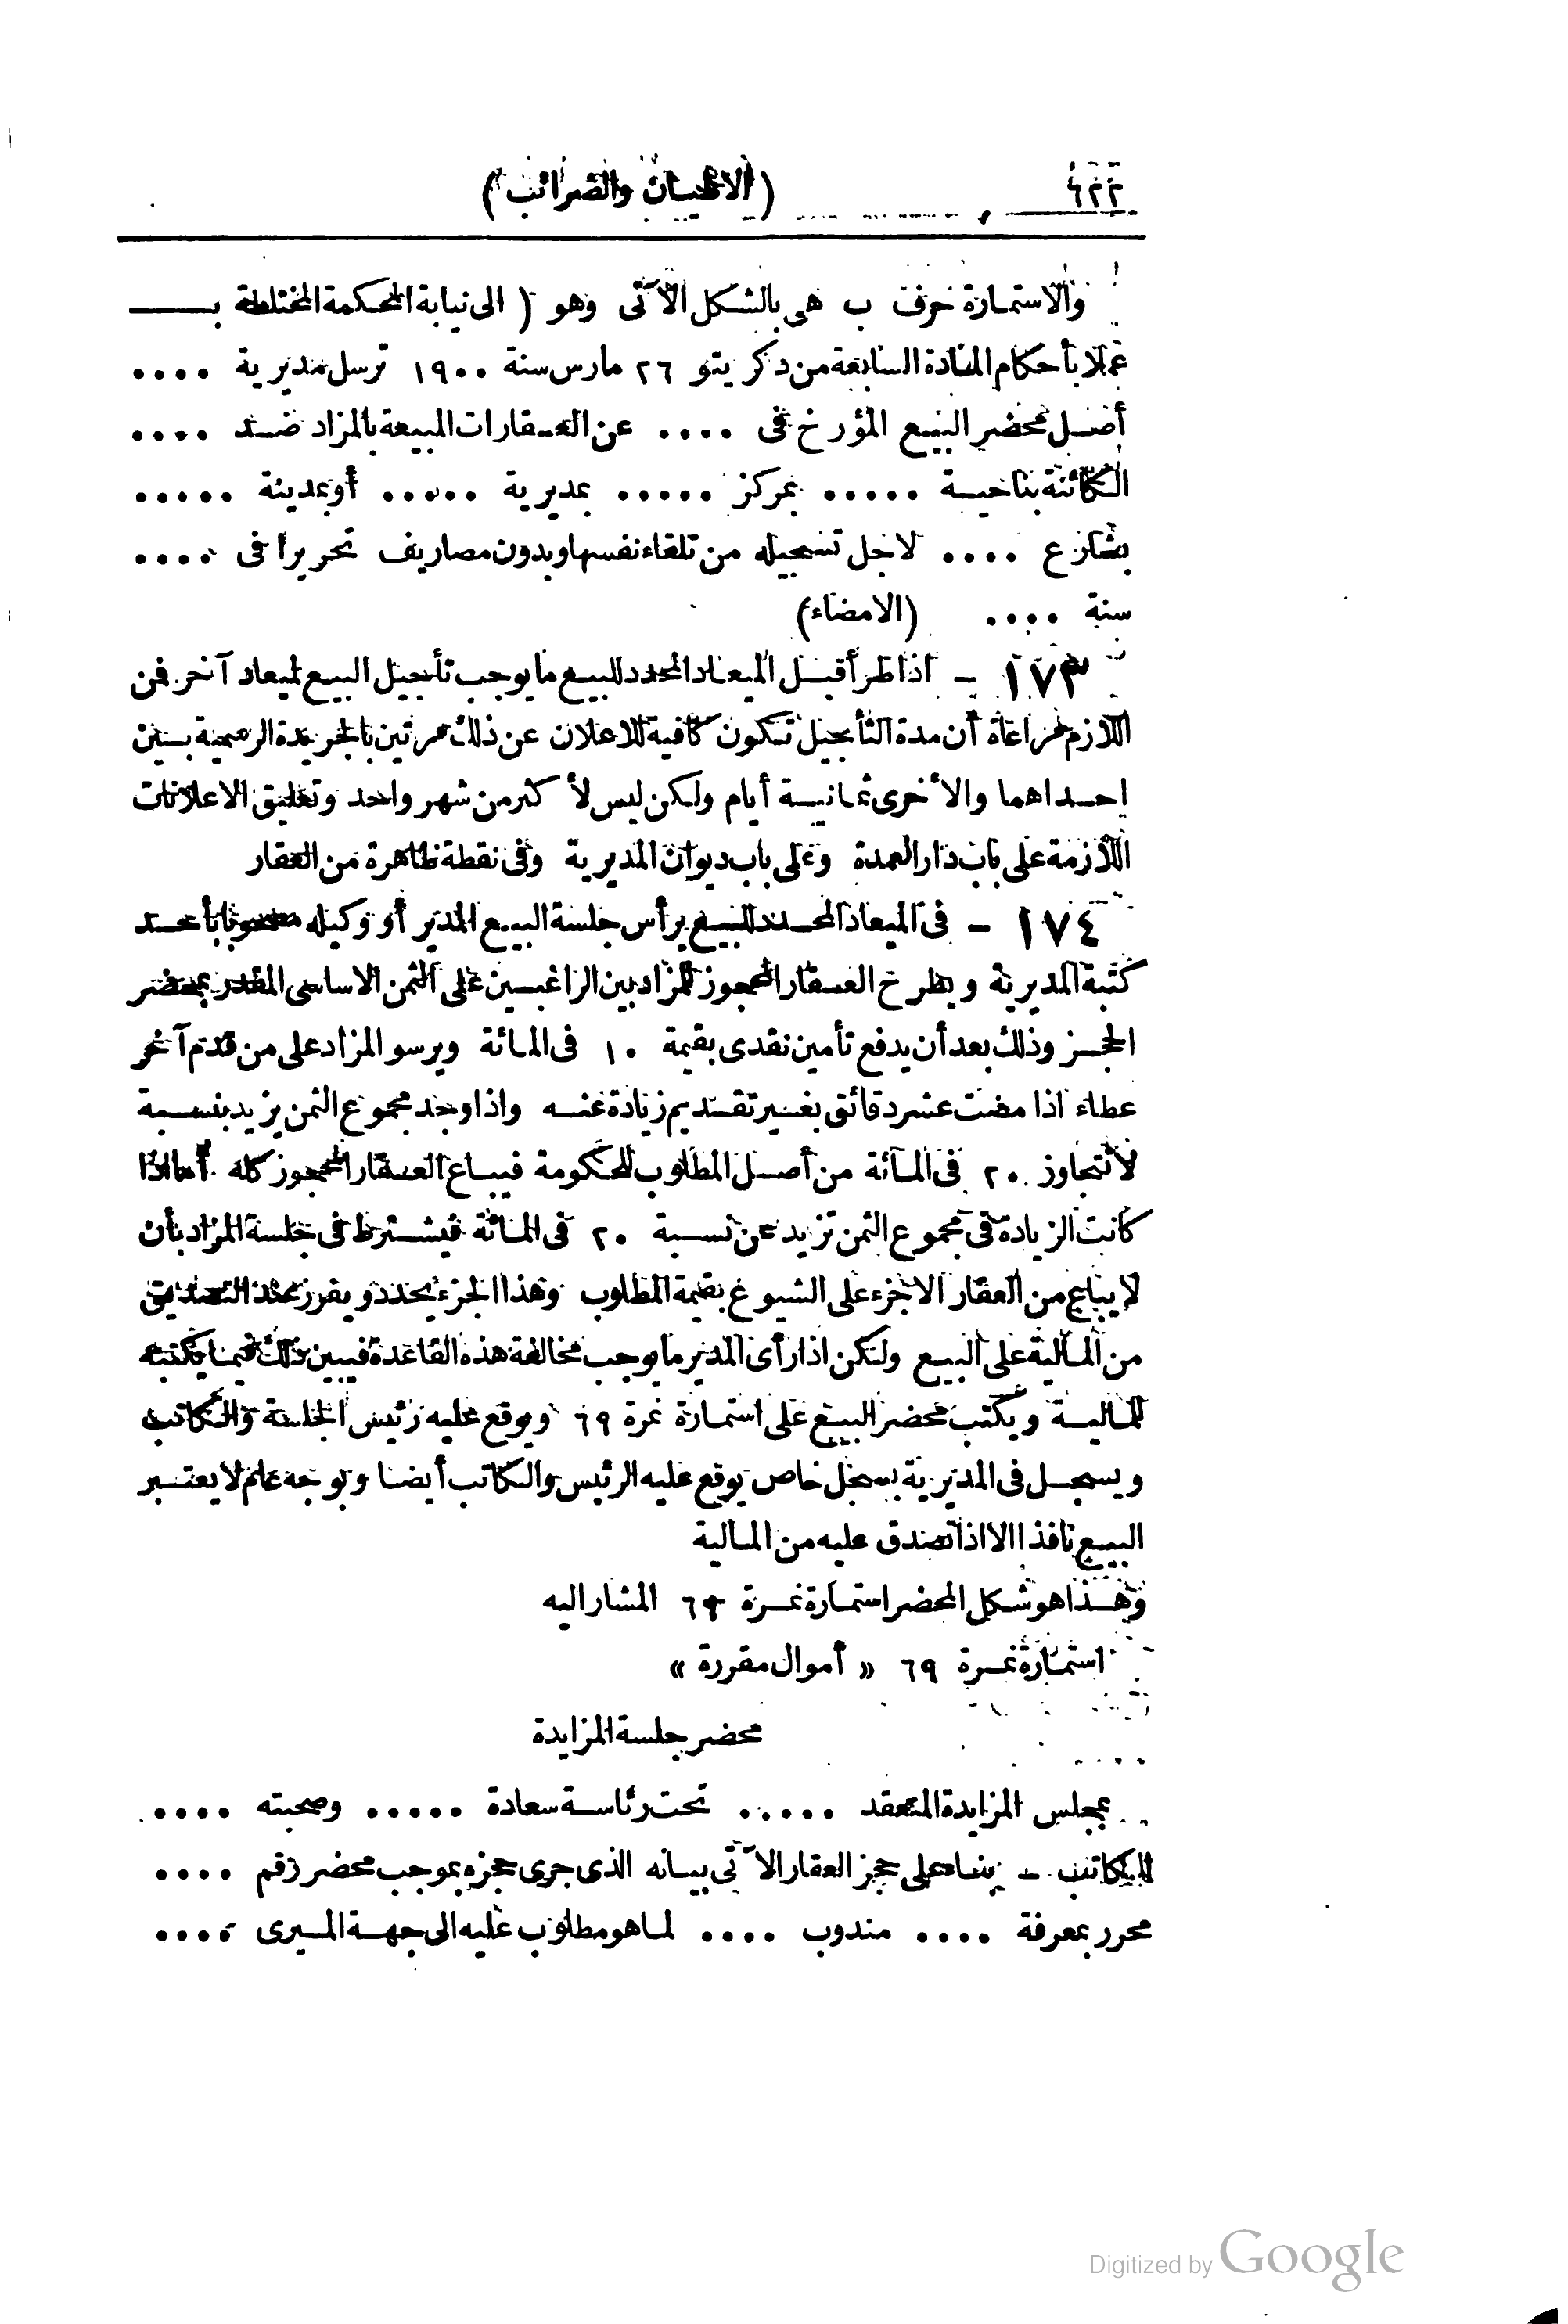 ٦٢٢
(الاطيان والضرائب)
والاستمارة حرف ب هى بالشكل الآتى وهو ( الى نيابة المحكمة المختلطة بـــــ
عملا بأحكام المادة السابعة من دكريتو ٢٦ مارس سنة ١٩٠٠ ترسل مديرية ....
أصل محضر البيع المؤرخ فى .... عن العقارات المبيعة بالمزاد ضد ....
الكائنة بناحية ..... بمركز ..... بمديرية ..... أو بمدينة .....
بشارع .... لاجل تسجيله من تلقاء نفسها وبدون مصاريف تحريرا فى ....
سنة .... (الامضاء)
١٧٣ - اذا طرأ قبل الميعاد المحدد للبيع ما يوجب تأجيل البيع لميعاد آخر فمن
اللازم مراعاة أن مدة التأجيل تكون كافية للاعلان عن ذلك مرتين بالجريدة الرسمية بين
احداهما والأخرى ثمانية أيام ولكن ليس لأكثر من شهر واحد وتعليق الاعلانات
اللازمة على باب دار العمدة وعلى باب ديوان المديرية وفى نقطة ظاهرة من العقار
١٧٤ - فى الميعاد المحدد للبيع يرأس جلسة البيع المدير أو وكيله مصحوبا بأحد
كتبة المديرية ويطرح العقار المحجوز للمزاد بين الراغبين على الثمن الاساسى المقدر بمحضر
الحجز وذلك بعد أن يدفع تأمين نقدى بقيمة ١٠ فى المائة ويرسو المزاد على من قدم آخر
عطاء اذا مضت عشر دقائق بغير تقديم زيادة عنه واذا وجد مجموع الثمن يزيد بنسبة
لا تتجاوز ٢٠ فى المائة من أصل المطلوب للحكومة فيباع العقار المحجوز كله أما اذا
كانت الزيادة فى مجموع الثمن تزيد عن نسبة ٢٠ فى المائة فيشترط فى جلسة المزاد بأن
لا يباع من العقار الا جزء على الشيوع بقيمة المطلوب وهذا الجزء يحدد ويفرز عند التصديق
من المالية على البيع ولكن اذا رأى المدير ما يوجب مخالفة هذه القاعدة فيبين ذلك فيما يكتبه
للمالية ويكتب محضر البيع على استمارة نمرة ٦٩ ويوقع عليه رئيس الجلسة والكاتب
ويسجل فى المديرية بسجل خاص يوقع عليه الرئيس والكاتب أيضا وبوجه عام لا يعتبر
البيع نافذا الا اذا تصدق عليه من المالية
وهذا هو شكل المحضر استمارة نمرة ٦٩ المشار اليه
استمارة نمرة ٦٩ « أموال مقررة »
محضر جلسة المزايدة
بمجلس المزايدة المنعقد ..... تحت رئاسة سعادة ..... وصحبته ....
الكاتب - بناء على حجز العقار الآتى بيانه الذى جرى حجزه بموجب محضر رقم ....
محرر بمعرفة .... مندوب .... لما هو مطلوب عليه الى جهة الميرى ....
Digitized by Google